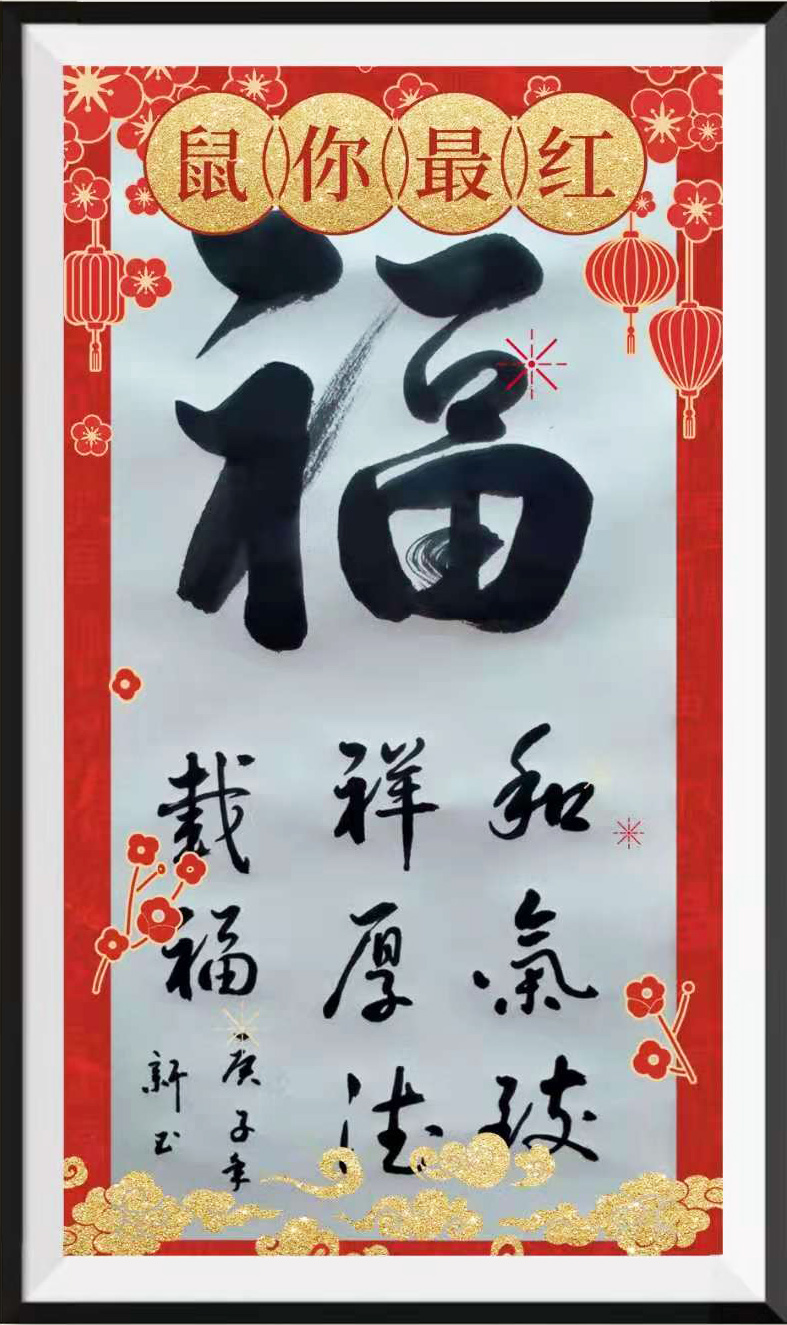 鼠你最红
福
和氣致
祥厚德
載福
庚子年
新